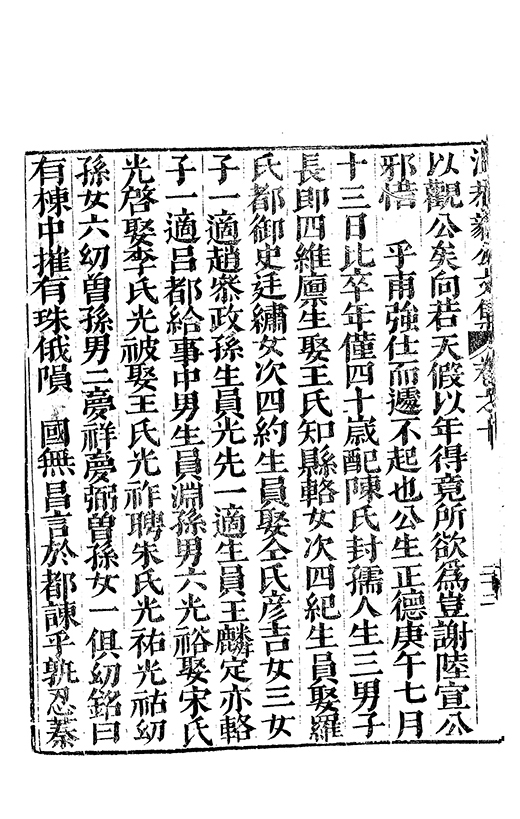 溫恭毅公文集 卷之十
以觀公矣向若天假以年得竟所欲爲豈謝陸宣公
邪惜 乎甫強仕而遽不起也公生正德庚午七月
十三日比卒年僅四十歲配陳氏封孺人生三男子
長即四維廩生娶王氏知縣輅女次四紀生員娶羅
氏都御史廷繡女次四約生員娶仝氏彥吉女三女
子一適趙叅政孫生員光先一適生員王麟定亦輅
子一適呂都給事中男生員淵孫男六光裕娶宋氏
光啓娶李氏光被娶王氏光祚聘朱氏光祐光祜幼
孫女六幼曾孫男二夢祥夢弼曾孫女一俱幼銘曰
有棟中摧有珠俄隕 國無昌言於都諫乎孰忍蓁